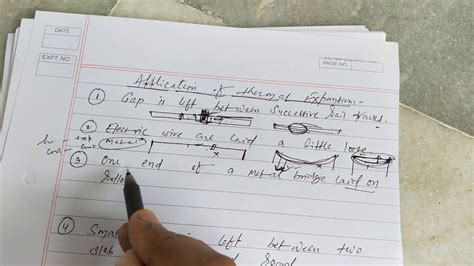 DATE
EXPT. NO.
PAGE NO.
Application of thermal Expansion-
① Gap is left between Successive rail
② Electric wire are laid a little loose
Metal
③ One end of a Metal bridge laid on
④ Small left between two
slab